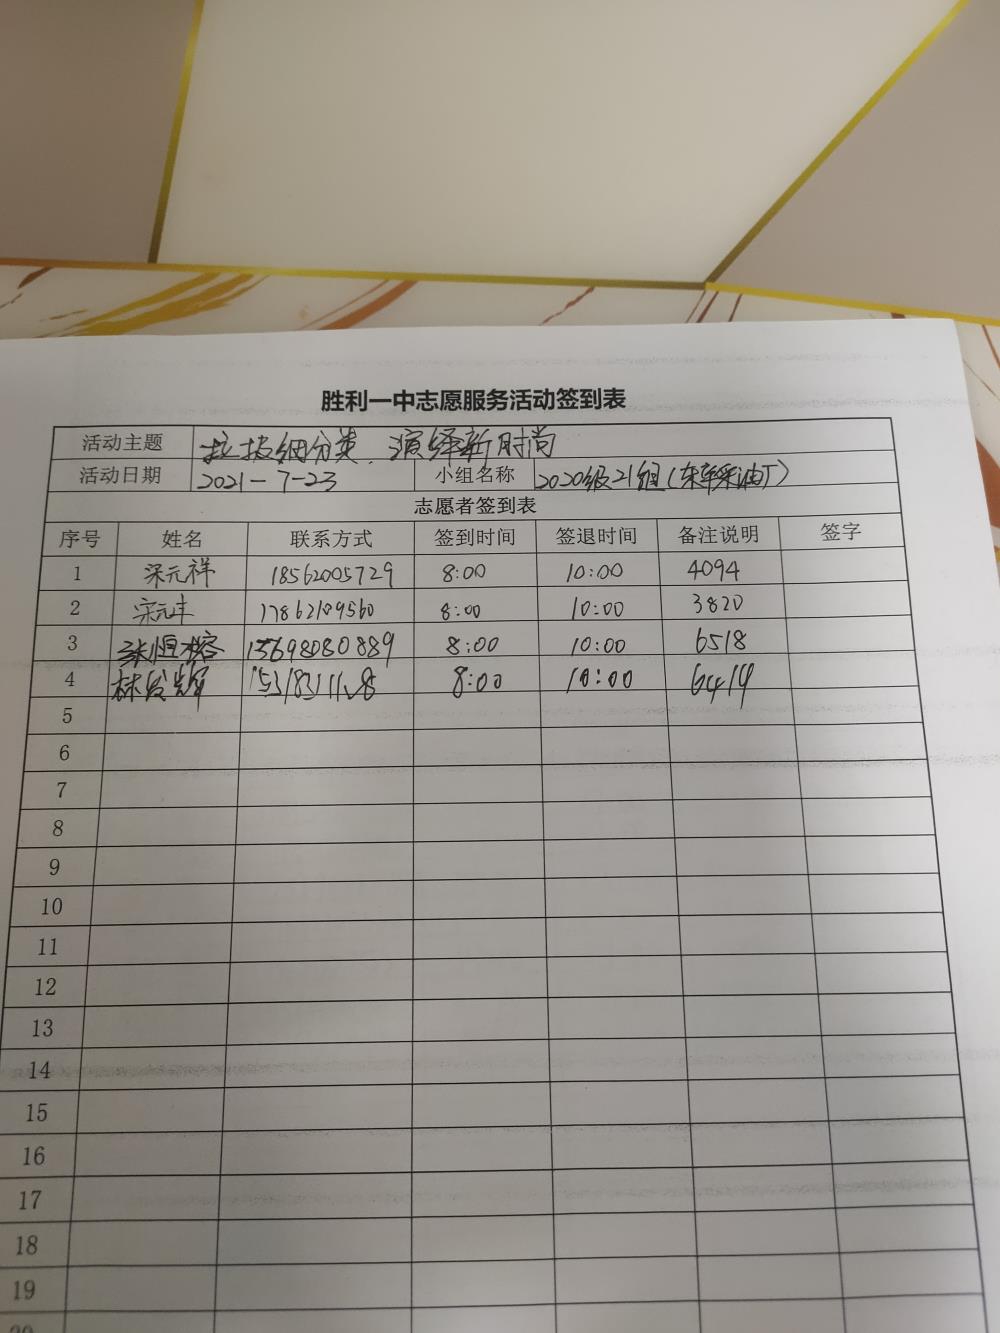 胜利一中志愿服务活动签到表
活动主题 垃圾细分类、演绎新时尚
活动日期 2021-7-23 小组名称 2020级21组(东辛采油厂)
志愿者签到表
序号 姓名 联系方式 签到时间 签退时间 备注说明 签字
1 梁元祥 18562005729 8:00 10:00 4094
2 宗元丰 17862189560 8:00 10:00 3820
3 13698080889 8:00 10:00 6518
4 8:00 10:00 6419
5
6
7
8
9
10
11
12
13
14
15
16
17
18
19
20